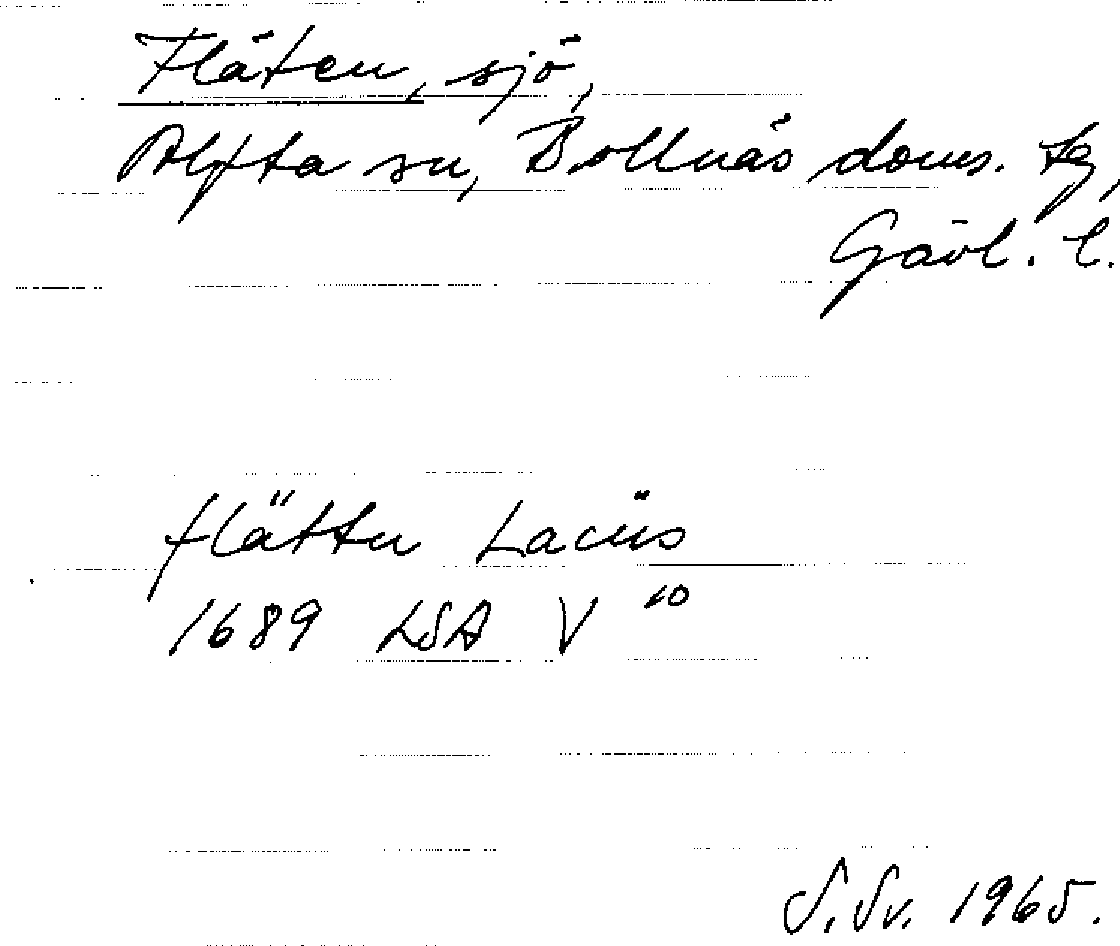 Fläten, sjö,
Alfta sn, Bollnäs doms. tg,
Gävl. l.
flättn Lacüs
1689 LSA V 10
S. Sv. 1965.